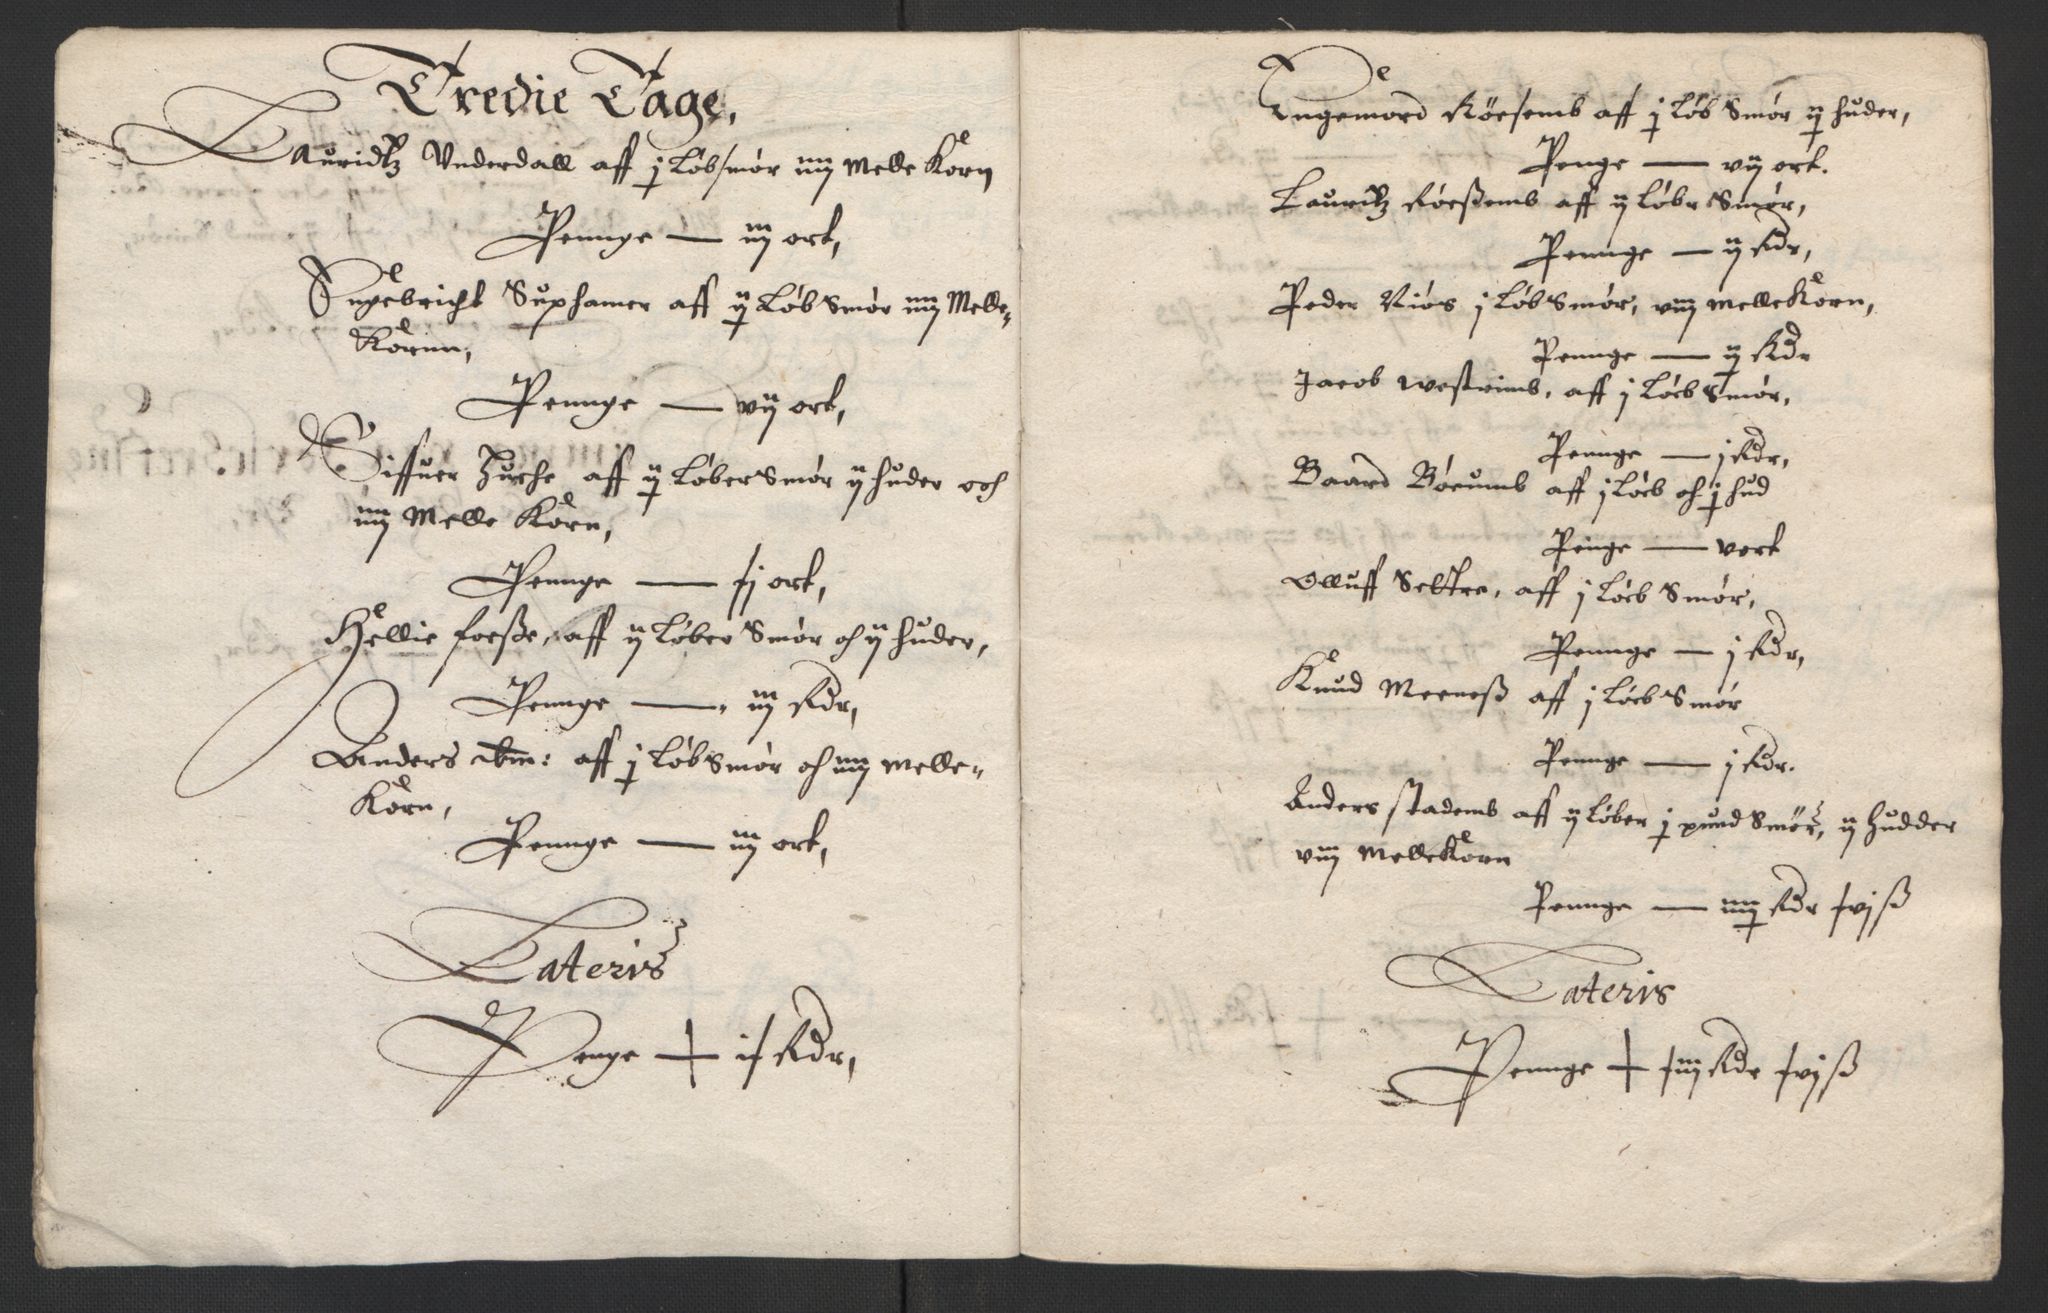 Tredie Tage,
Lauridtz Vnderdall aff j Løb smør iiij Melle Korn
Pennge — iij ort,
Engebricht Suphamer aff ij Løb Smør iiij Melle=
Kornn,
Pennge — vij ort,
Siffuer aff ij Løber Smør ij huder och
iiij Melle Korn,
Pennge — ort,
Hellie foesße, aff ij Løber Smør oh ij huder,
Pennge — iij Rdr,
Anders ibm: aff j Løb Smør oh iiij Melle=
Korn,
Pennge — iij ort,
Lateris
Penge — Rdr,
Ingemord Röesemb aff j Løb Smør ij huder,
Penge — vij ort.
Lauritz Röeßemb aff ij Løbr Smør,
Pennge — ij Rdr,
Peder j Løb Smør, viij Melle Korn,
Pennge — ij Rdr
Jacob Westrimb, aff j Løeb Smør,
Pennge — j Rdr,
Baard Böeumb aff j Løeb oh j hud
Penge — v ort
Olluff Selltre, aff j Løeb Smør,
Pennge — j Rdr,
Knud Merneß aff j Løeb Smør
Pennge — j Rdr.
Anders stademb aff ij Løber j pund Smör, ij Hudder
viij Melle Korn
Pennge — iiij Rdr xvj ß
Lateris
Pennge — xiij Rdr xvj ß